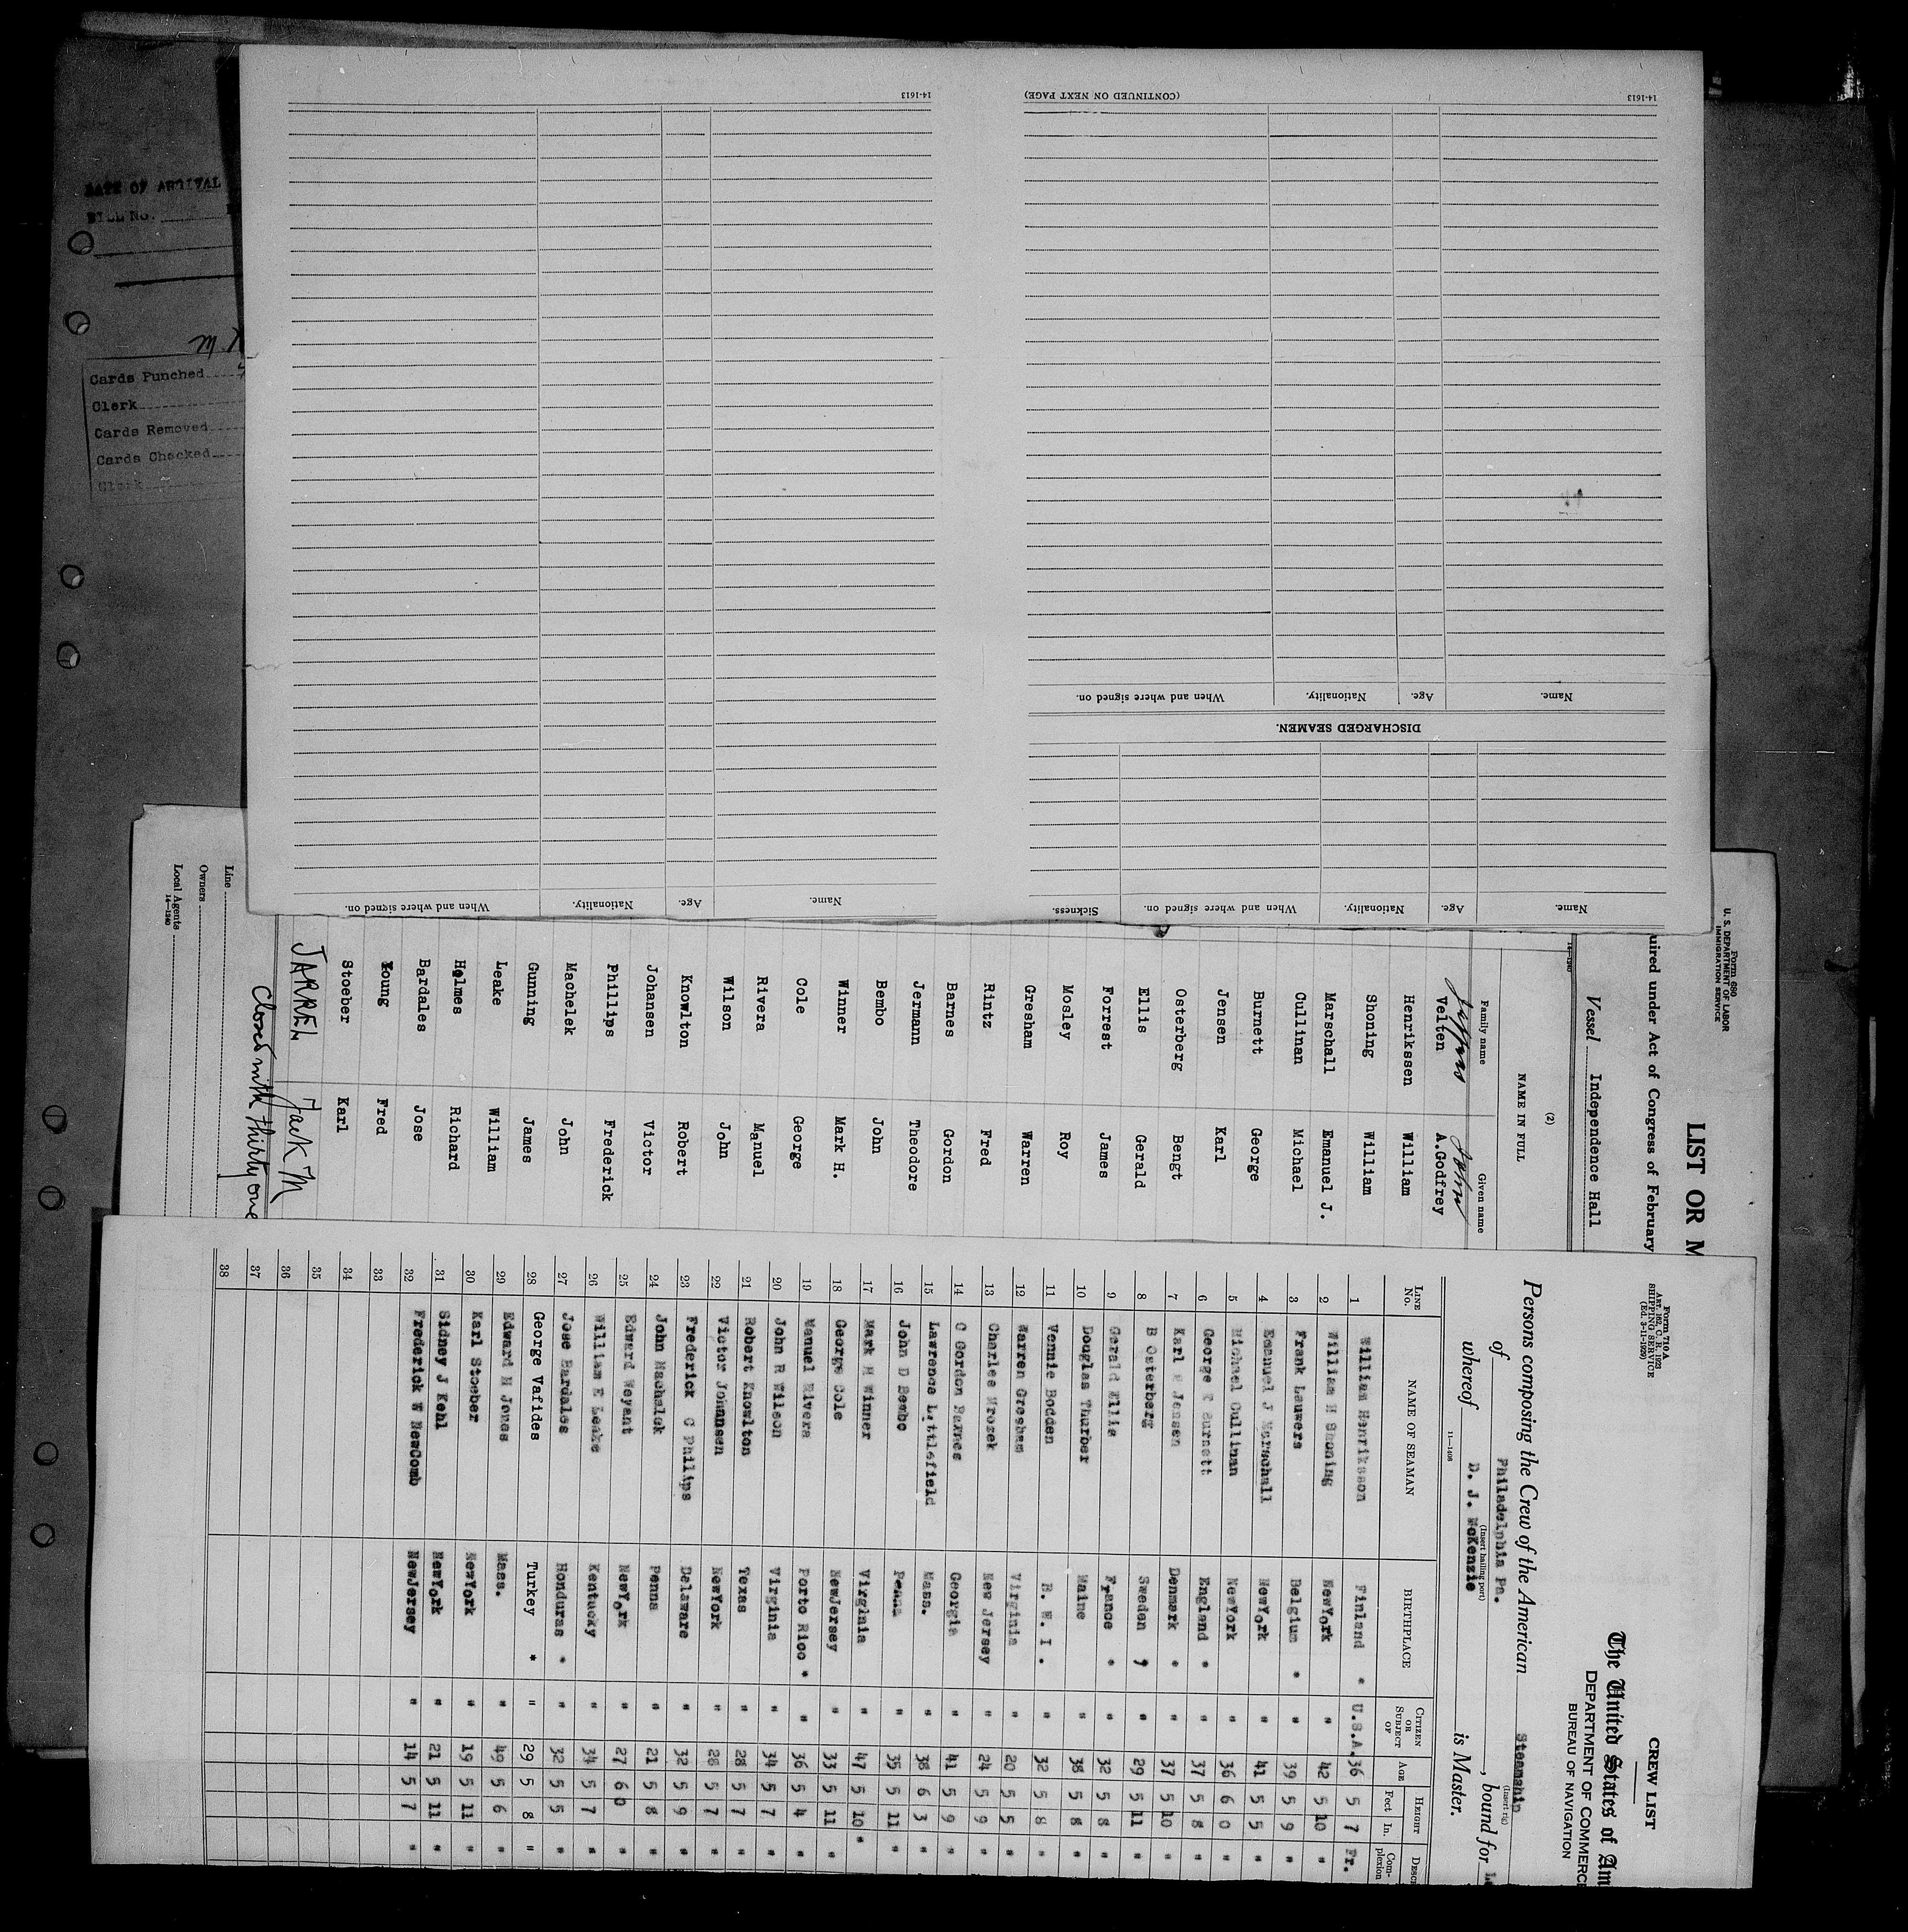 DATE OF ARRIVAL
BILL NO.
Cards Punched
Clerk
Cards Removed
Cards Checked
Clerk
14-1613
(CONTINUED ON NEXT PAGE)
14-1613
Name. Age. Nationality. When and where signed on.
DISCHARGED SEAMEN.
Name. Age. Nationality. When and where signed on. Sickness.
Name. Age. Nationality. When and where signed on.
Form 680
U. S. DEPARTMENT OF LABOR
IMMIGRATION SERVICE
LIST OR M
uired under Act of Congress of February
Vessel Independence Hall
14-1240
(2)
NAME IN FULL
Family name Given name
Jeffers John
Velten A.Godfrey
Henrikssen William
Shoning William
Marschall Emanuel J.
Cullinan Michael
Burnett George
Jensen Karl
Osterberg Bengt
Ellis Gerald
Forrest James
Mosley Roy
Gresham Warren
Rintz Fred
Barnes Gordon
Jermann Theodore
Bembo John
Winner Mark H.
Cole George
Rivera Manuel
Wilson John
Knowlton Robert
Johansen Victor
Phillips Frederick
Machelek John
Gunning James
Leake William
Holmes Richard
Bardales Jose
Young Fred
Stoeber Karl
JARREL Jack M
Closed with thirty one
Line
Owners
Local Agents
14-1240
Form 710 A
ART. 162, C. R. 1923
SHIPPING SERVICE
(Ed. 3-11-1929)
CREW LIST
The United States of Am
DEPARTMENT OF COMMERCE
BUREAU OF NAVIGATION
Persons composing the Crew of the American Steamship
(Insert rig)
of Philadelphia Pa. , bound for
(Insert hailing port)
whereof D. J. McKenzie is Master.
11-1408
LINE No. NAME OF SEAMAN BIRTHPLACE CITIZEN OR SUBJECT OF AGE HEIGHT Feet In. DESCR Complexion
1 William Henriksson Finland * U.S.A. 36 5 7 Fr.
2 William H Shoning NewYork " 42 5 10 "
3 Frank Lauwers Belgium * " 39 5 9 "
4 Emanuel J Marschall NewYork " 41 5 5 "
5 Michael Cullinan NewYork " 36 6 0 "
6 George T Burnett England * " 37 5 8 "
7 Karl F Jensen Denmark * " 37 5 10 "
8 B Osterberg Sweden * " 29 5 11 "
9 Gerald Ellis France * " 32 5 8 "
10 Douglas Thurber Maine " 38 5 8 "
11 Vennie Bodden B. W. I * " 32 5 8 "
12 Warren Gresham Virginia " 20 5 5 "
13 Charles Mrozek New Jersey " 24 5 9 "
14 C Gordon Barnes Georgia " 41 5 9 "
15 Lawrence Littlefield Mass. " 38 6 3 "
16 John D Bembo Penna " 35 5 11 "
17 Mark H Winner Virginia " 47 5 10 "
18 George Cole NewJersey " 33 5 11 "
19 Manuel Rivera Porto Rico * " 36 5 4 "
20 John R Wilson Virginia " 34 5 7 "
21 Robert Knowlton Texas " 28 5 7 "
22 Victor Johansen NewYork " 28 5 7 "
23 Frederick C Philips Delaware " 32 5 9 "
24 John Machalek Penna " 21 5 8 "
25 Edward Weyant NewYork " 27 6 0 "
26 William E Leake Kentucky " 34 5 7 "
27 Jose Bardales Honduras * " 32 5 5 "
28 George Vafides Turkey * " 29 5 8 "
29 Edward H Jones Mass. " 49 5 6 "
30 Karl Stoeber NewYork " 19 5 11 "
31 Sidney J Kehl NewYork " 21 5 11 "
32 Frederick W NewComb NewJersey " 14 5 7 "
33
34
35
36
37
38